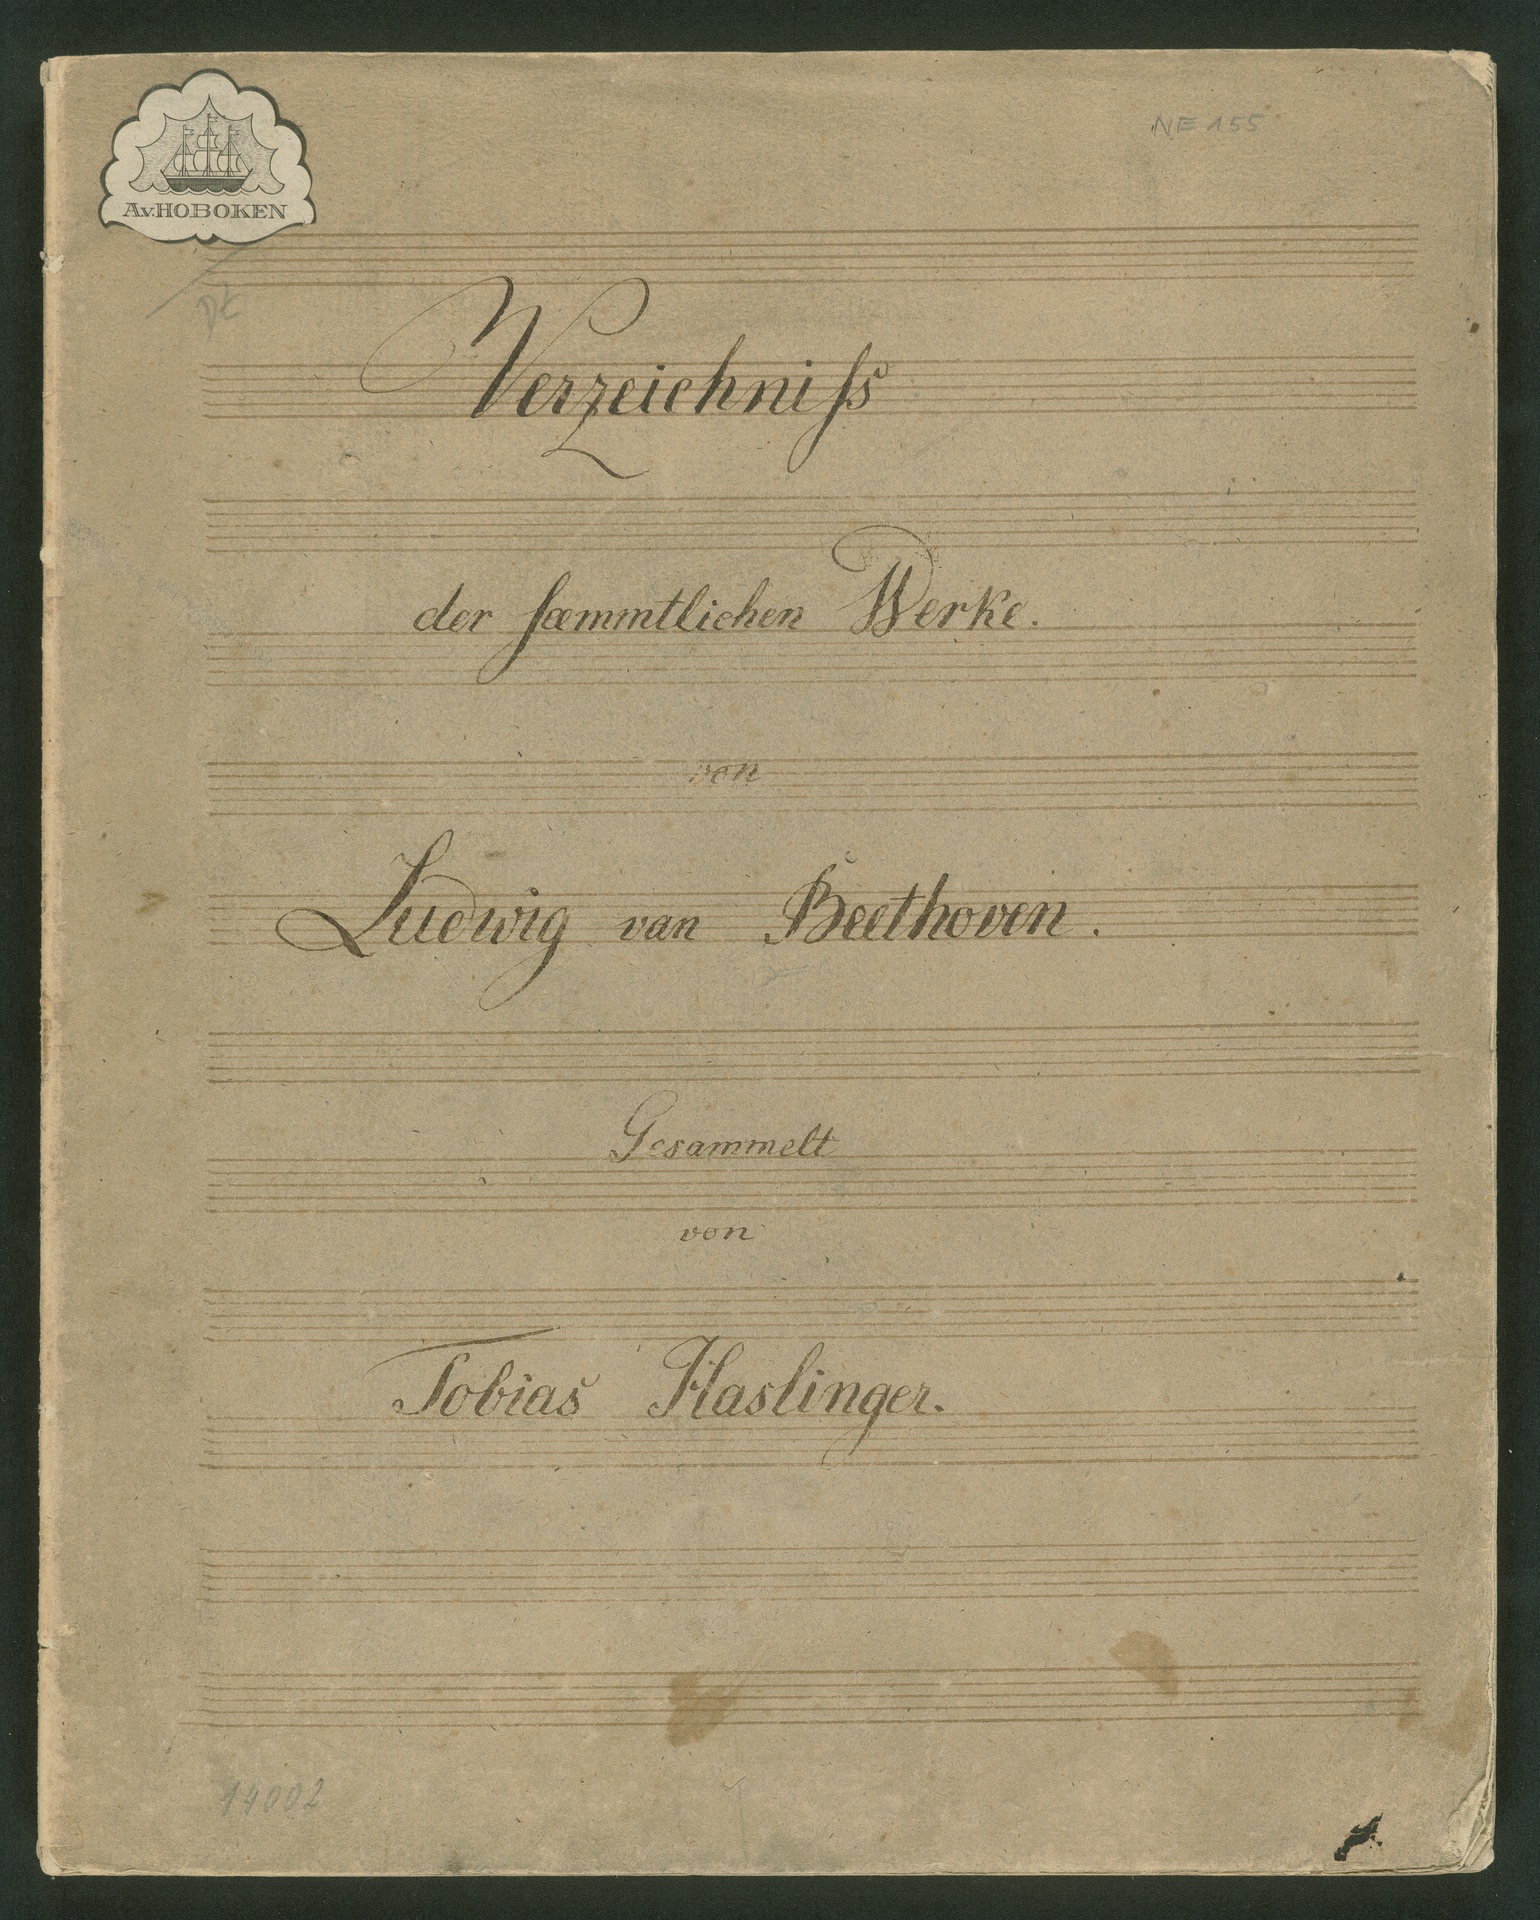 NE 155
A.v.HOBOKEN
Verzeichniſs
der ſæmmtlichen Werke.
von
Ludwig van Beethoven.
Gesammelt
von
Tobias Haslinger.
14002